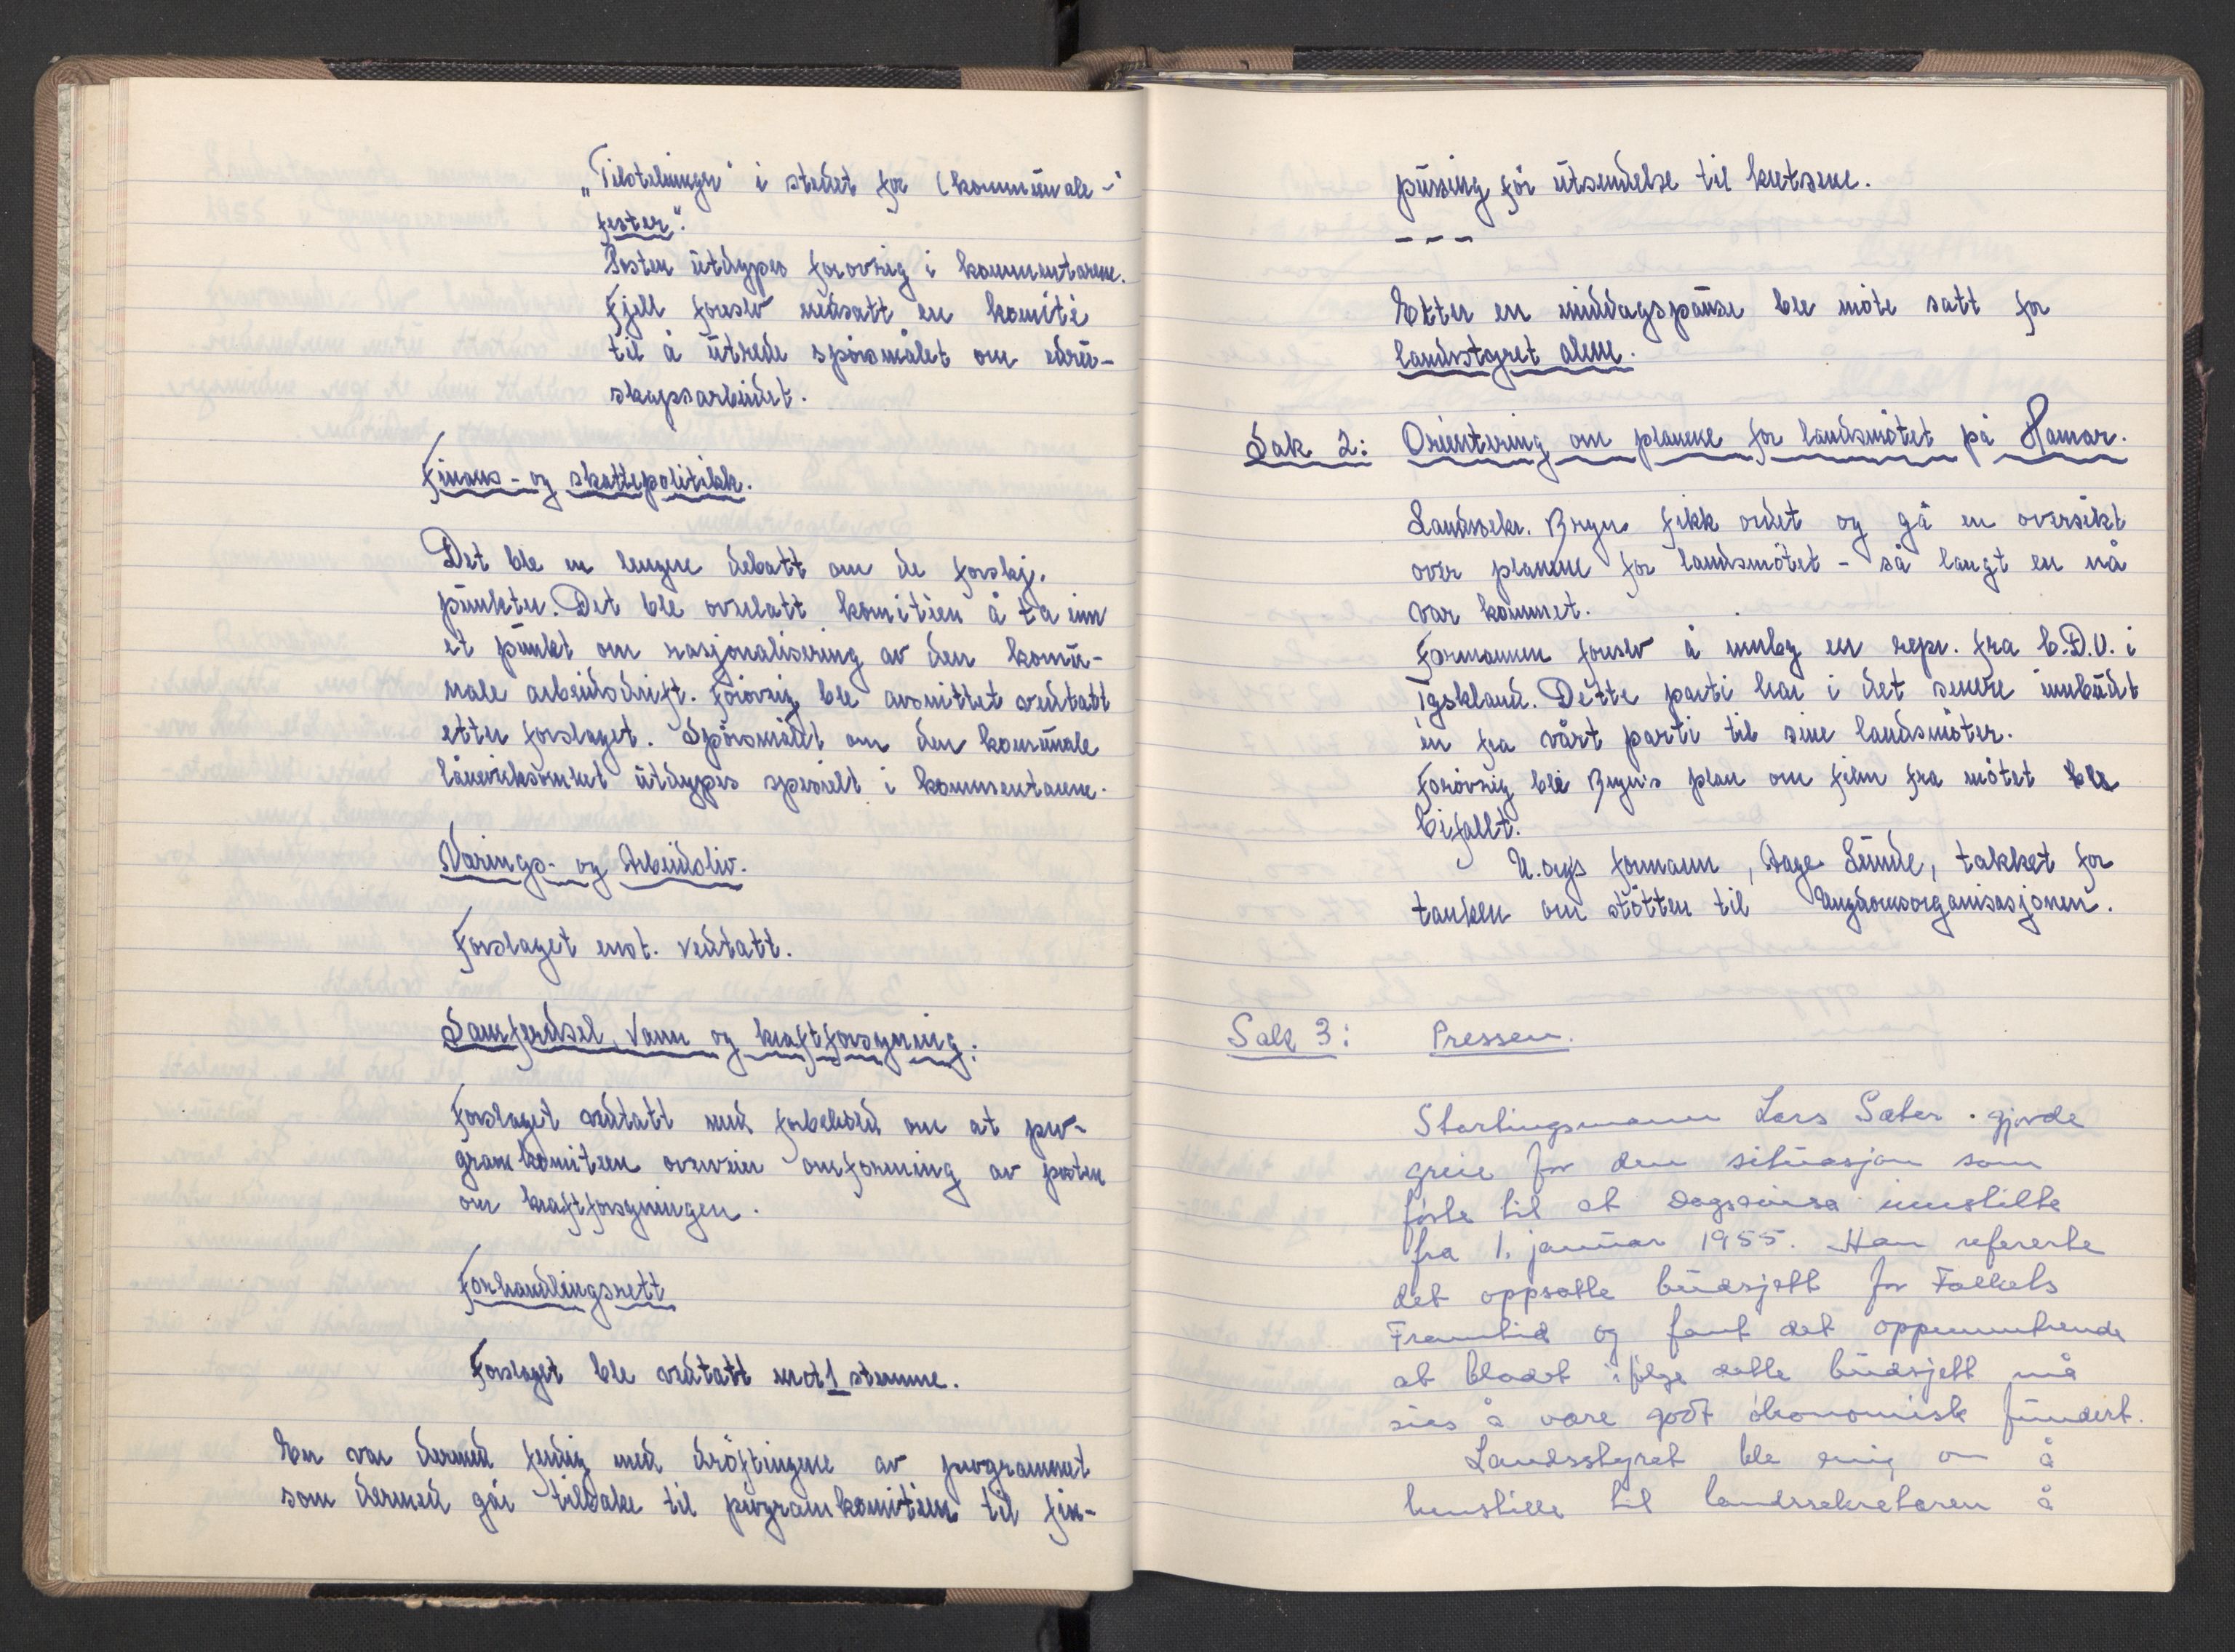 „Tilstelninger" i stedet for (kommunale-"
fester".
Posten utdypes forøvrig i kommentarene.
Fjell foreslo nedsatt en komité
til å utrede spörsmålet om edru-
skapsarbeidet.
Finans- og skattepolitikk.
Det ble en lengre debatt om de forskj.
punkter. Det ble overlatt komitéen å ta inn
et punkt om rasjonalisering av den komu-
nale arbeidsdrift. Forövrig ble avsnittet vedtatt
etter forslaget. Spörsmålet om den komunale
lånevirksomhet utdypes spesielt i kommentarene.
Nærings- og Arbeidsliv.
Forslaget enst. vedtatt.
Samferdsel, Vann og kraftforsyning.
Forslaget vedtatt med forbehold om at pro-
gramkomiteen overveier omforming av posten
om kraftforsyningen.
Forhandlingsrett
Forslaget ble vedtatt mot 1 stemme.
En var dermed ferdig med dröftingene av programmet
som dermed går tilbake til programkomitéen til fin-
pussing för utsendelse til kretsene.
- - -
Etter en middagspause ble möte satt for
landsstyret alene.
Sak 2: Orientering om planene for landsmötet på Hamar.
Landssekr. Bryn fikk ordet og ga en oversikt
over planene for landsmötet - så langt en nå
var kommet.
Formannen foreslo å innby en repr. fra C.D.U. i
Tyskland. Dette parti har i det senere innbudt
én fra vårt parti til sine landsmöter.
Forövrig ble Bryn's plan om film fra mötet ble
bifallt.
U.org's formann, Aage Sunde, takket for
tanken om stötten til Ungdomsorganisasjonen.
Sak 3: Pressen.
Stortingsmann Lars Sæter. gjorde
greie for den situasjon som
förte til at Dagsavisa innstilte
fra 1. januar 1955. Han refererte
det oppsatte budsjett for Folkets
Framtid og fant det oppmuntrende
at bladet ifölge dette budsjett må
sies å være godt ökonomisk fundert.
Landsstyret ble enig om å
henstille til landssekretæren å